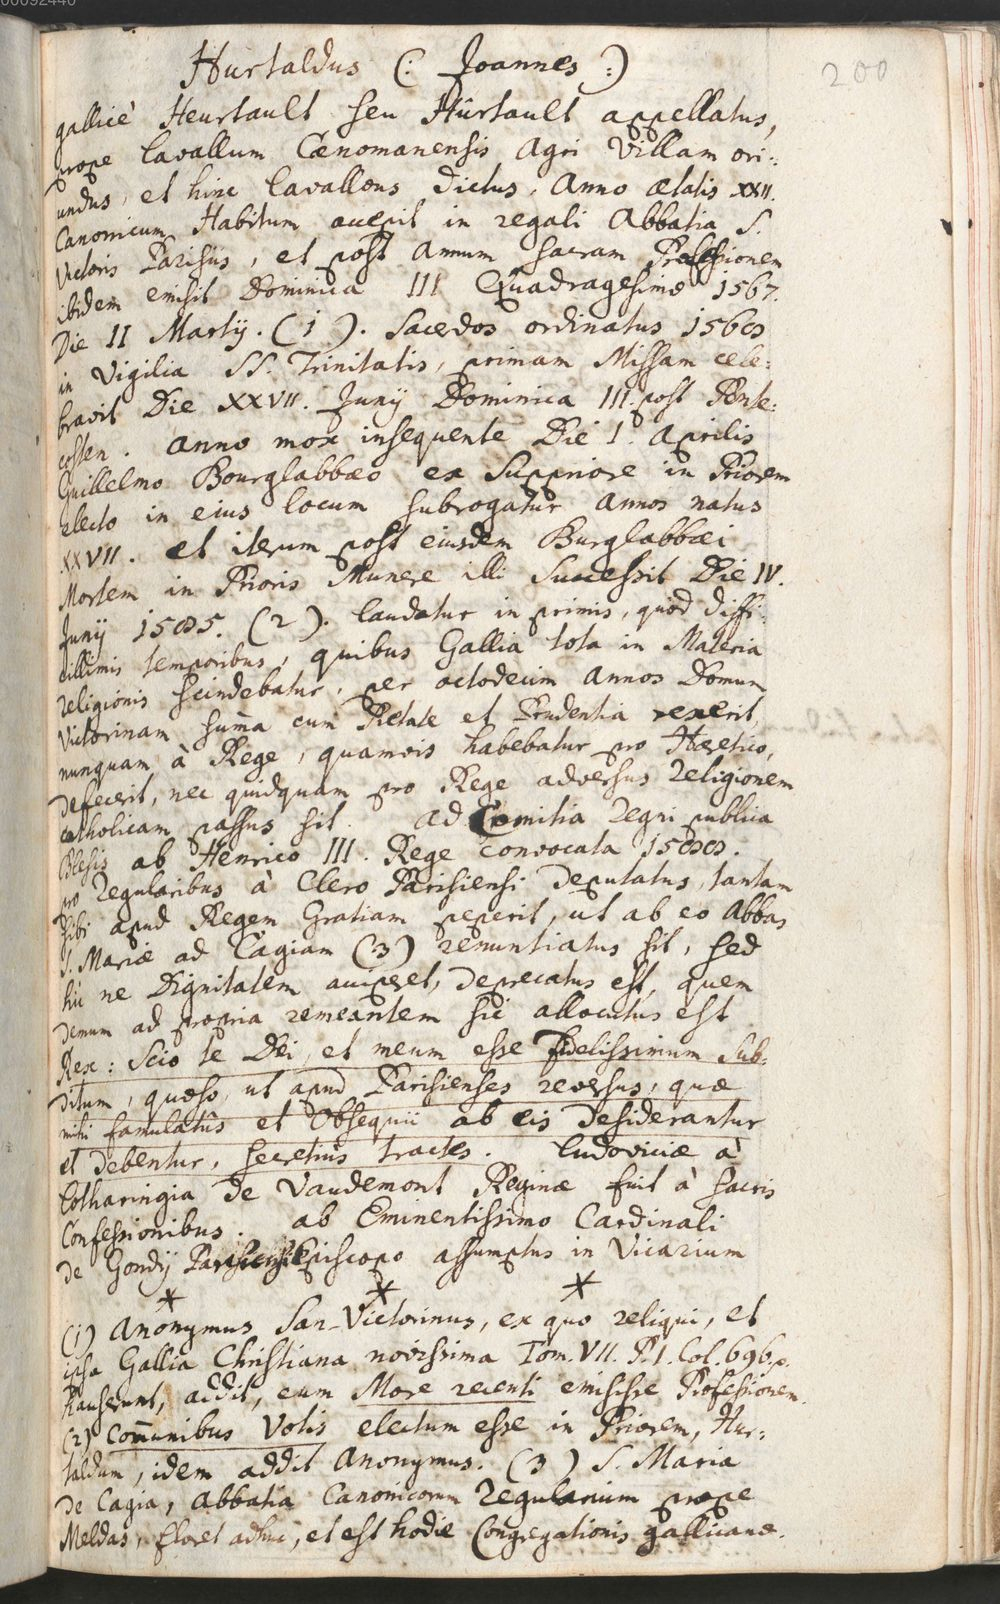 00092440
200
Hurtaldus (: Joannes :)
gallicè Heurtault seu Hurtault appellatus,
prope Lavallum Cœnomanensis Agri Villam ori:
undus, et hinc Lavallæus dictus, Anno ætatis XXII.
Canonicum Habitum accepit in regali Abbatia S.
Victoris Parisiis, et post Annum sacram Professionem
ibidem emisit Dominica III Quadragesimæ 1567.
Die II Martij. (1). Sacerdos ordinatus 1568
in Vigilia SS. Trinitatis, primam Missam cele:
bravit Die XXVII. Junij Dominica III. post Pente:
costen. Anno mox insequente Die 1. Aprilis
Guillelmo Bourglabbæo ex Suppriore in Priorem
electo in eius locum subrogatur Annos natus
XXVII. et iterum post eiusdem Burglabbæi
Mortem in Prioris Munere illi Successit Die IV.
Junij 1585. (2). Laudatur in primis, quòd diffi:
cillimis temporibus, quibus Gallia tota in Materia
religionis scindebatur, per octodecim Annos Domum
Victorinam summa cum Pietate et Prudentia rexerit,
nunquam à Rege, quamvis habebatur pro Hæretico,
defecerit, nec quidquam pro Rege adversus religionem
catholicam passus sit. Ad Comitia regni publica
Blesis ab Henrico III. Rege convocata 1588.
pro regularibus à Clero Parisiensi deputatus, tantam
sibi apud Regem Gratiam peperit, ut ab eo Abbas
S. Mariæ ad Cagiam (3) renuntiatus sit, sed
hic ne Dignitatem acciperet, deprecatus est, quem
demum ad propria remeantem sic allocutus est
Rex: Scio te Dei, et meum esse fidelissimum Sub:
ditum, quæso, ut apud Parisienses reversus, quæ
mihi famulatûs et Obsequii ab eis desiderantur
et debentur, secretiùs tractes. Ludovicæ à
Lotharingia de Vaudemont Reginæ fuit à sacris
Confessionibus. ab Eminentissimo Cardinali
de Gondy Parisiensi Episcopo assumptus in Vicarium
* * *
(1) Anonymus San-Victorinus, ex quo reliqui, et
ipsa Gallia Christiana novissima Tom. VII. P. I. Col. 696.
hauserunt, addit, eum More recenti emisisse Professionem.
(2) Com̄unibus Votis electum esse in Priorem, Hur:
taldum, idem addit Anonymus. (3) S. Maria
de Cagia, Abbatia Canonicorum Regularium prope
Meldas, floret adhuc, et est hodie Congregationis gallicanæ.